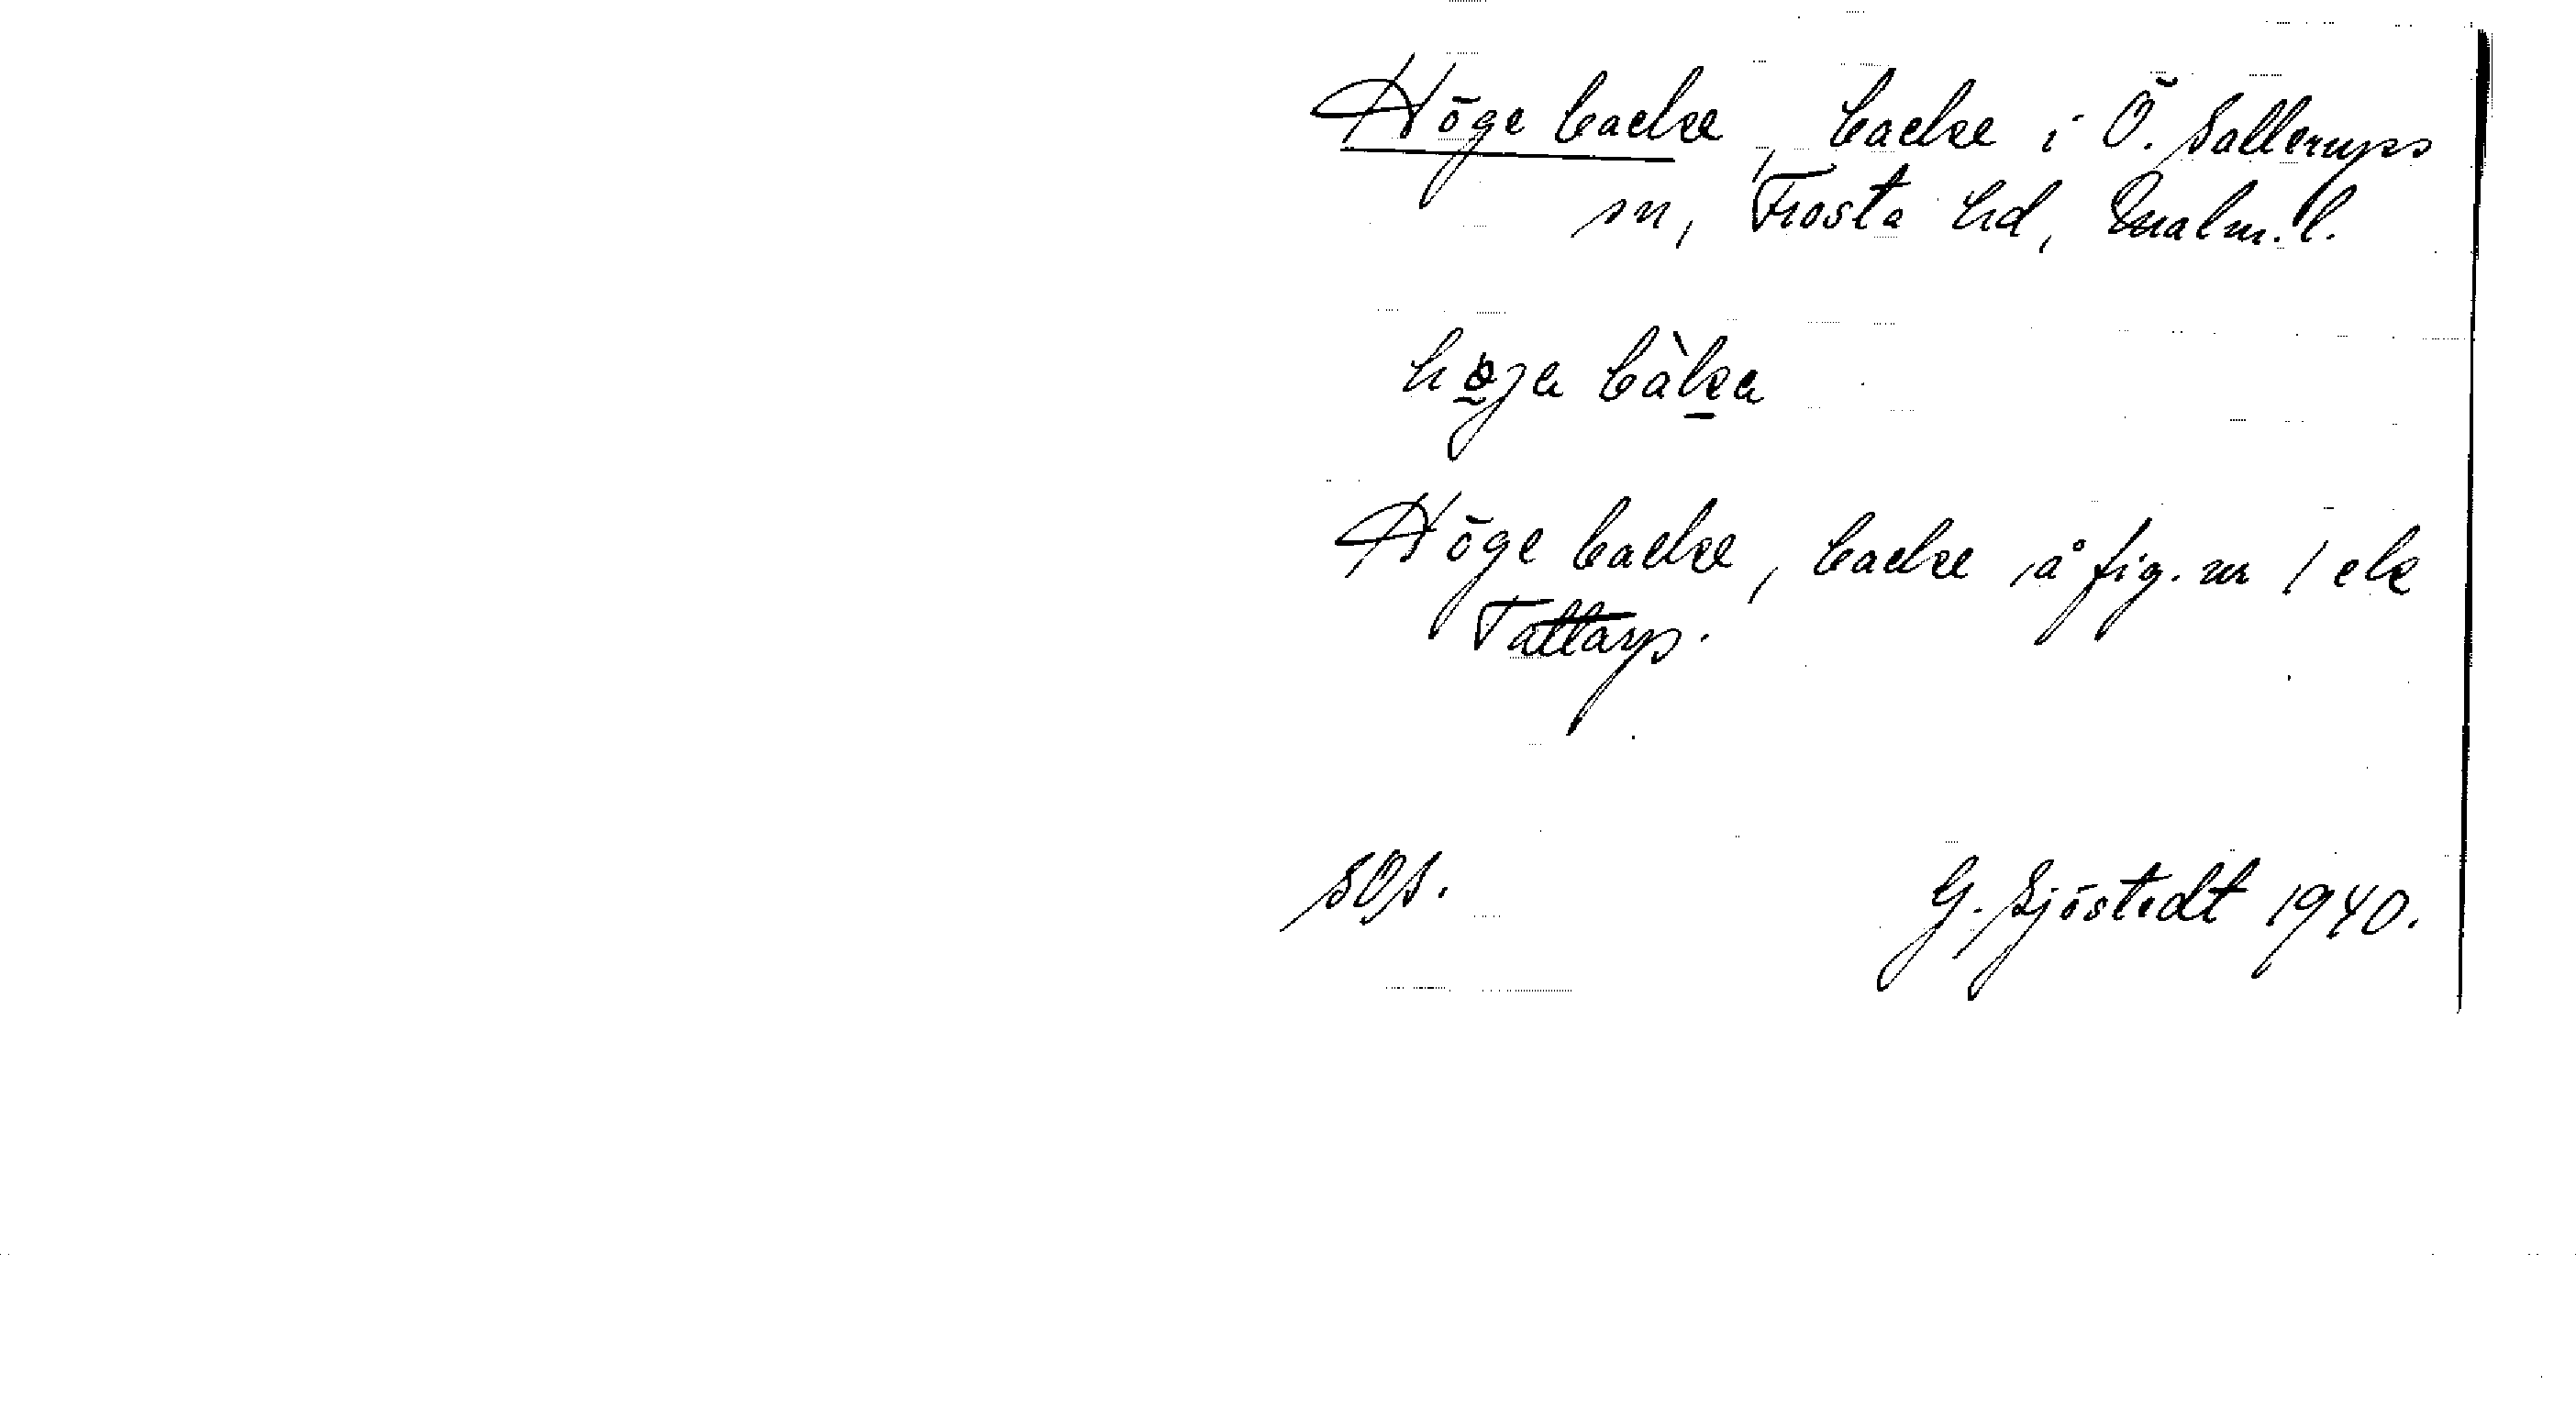 Höge backe, backe i Ö. Sallerups
sn, Frosta hd, Malm. l.
høja bàka
Höge backe, backe å fig. nr 1 ek
Tattarp.
SOS.
G. Sjöstedt 1940.